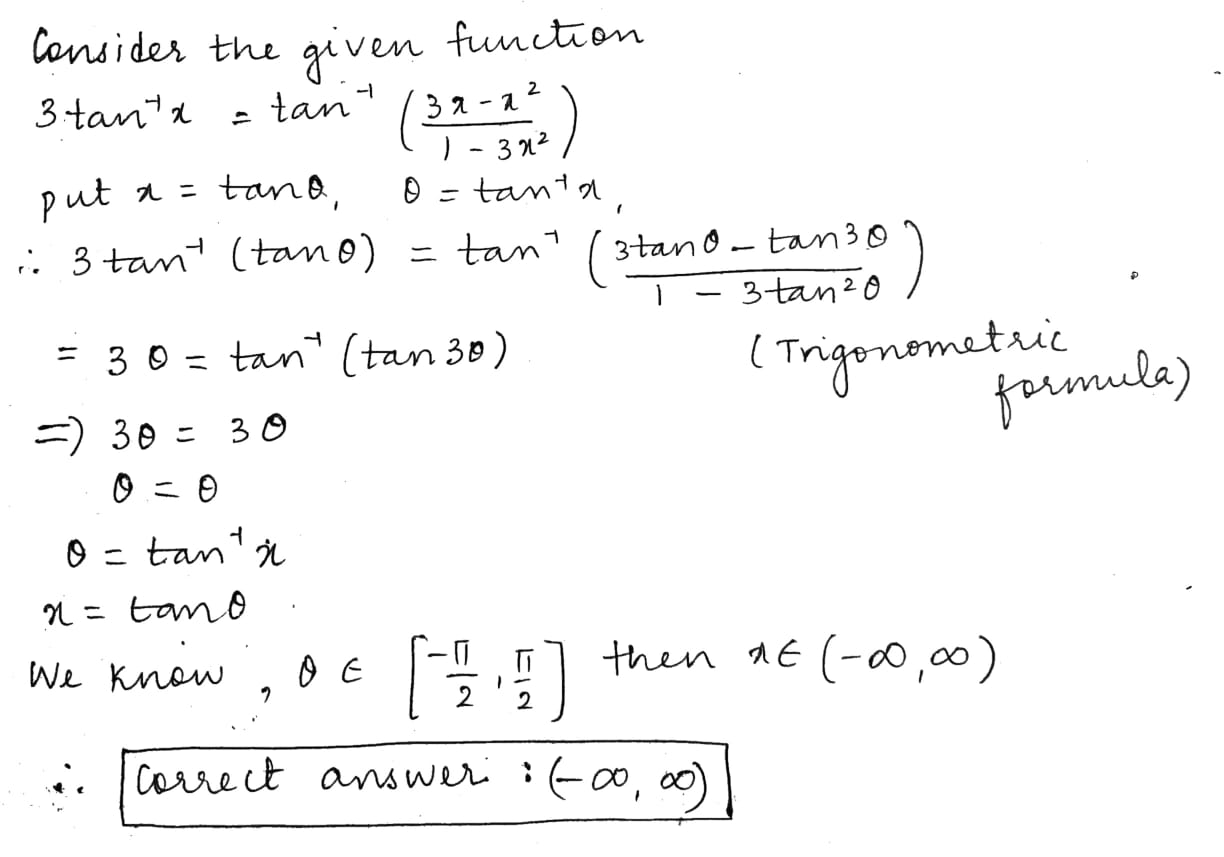 Consider the given function
3tan⁻¹x = tan⁻¹ (3x - x² / 1 - 3x²)
put x = tanθ, θ = tan⁻¹x,
∴ 3 tan⁻¹ (tanθ) = tan⁻¹ (3tanθ - tan³θ / 1 - 3tan²θ)
= 3θ = tan⁻¹ (tan 3θ) (Trigonometric formula)
=) 3θ = 3θ
θ = θ
θ = tan⁻¹x
x = tanθ
We know, θ ∈ [-π/2, π/2] then x ∈ (-∞, ∞)
∴ Correct answer : (-∞, ∞)